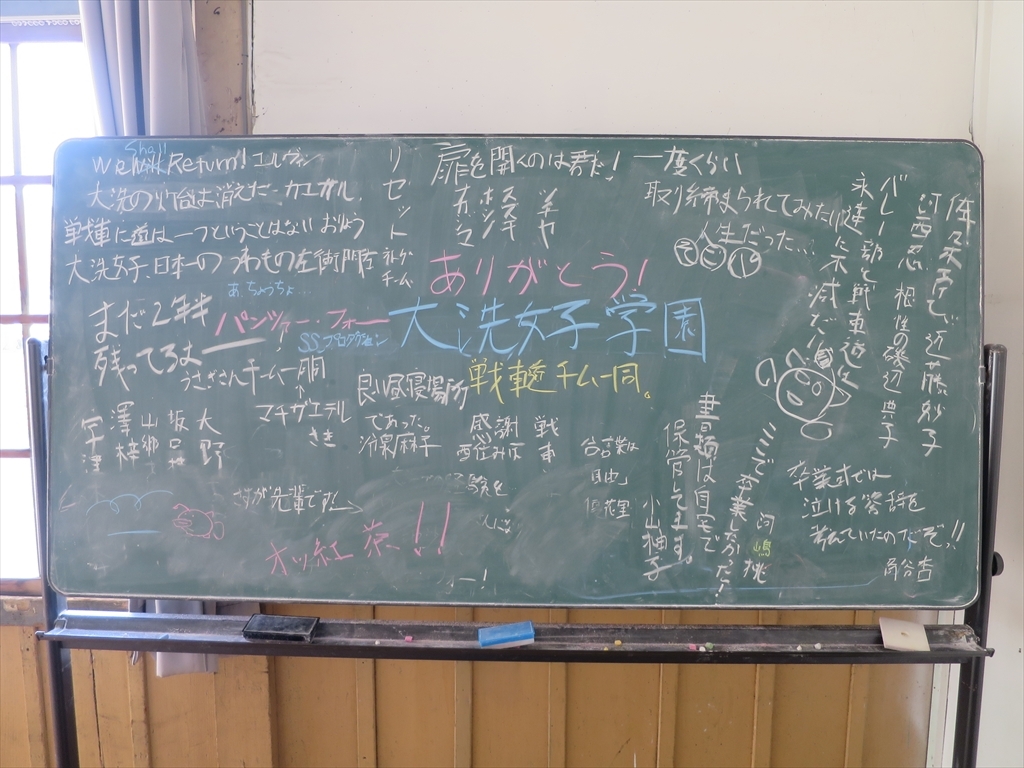 We Shall Return! エルヴィン
大洗の灯台は消えた カエサル
戦車道に道は一つということはない おりょう
大洗女子、日本一のつわもの 左衛門佐
リセット
ネトゲチーム
扉を開くのは君だ!
ナカジマ
ホシノ
スズキ
ツチヤ
一度くらい
取り締まられてみたい
人生だった…
そど子
バレー部と戦車道は
永遠に不滅だ!
根性の磯辺典子
河西忍
近藤妙子
ありがとう!
大洗女子学園
戦車道チーム一同。
あ、ちょうちょ
まだ2年半
残ってるよ
うさぎさんチーム一同
パンツァー・フォー
SSプロダクション
マチガエテル
さき
宇津
澤梓
山郷
阪口
大野
良い昼寝場所
であった。
冷泉麻子
戦車
感謝
自由
書類は自宅で
保管してます。
小山柚子
ミミミで卒業したかった!
河嶋桃
卒業式では
泣ける答辞を
考えていたのだぞ!!
角谷杏
さすが先輩です
オッ紅茶!!
ォー!